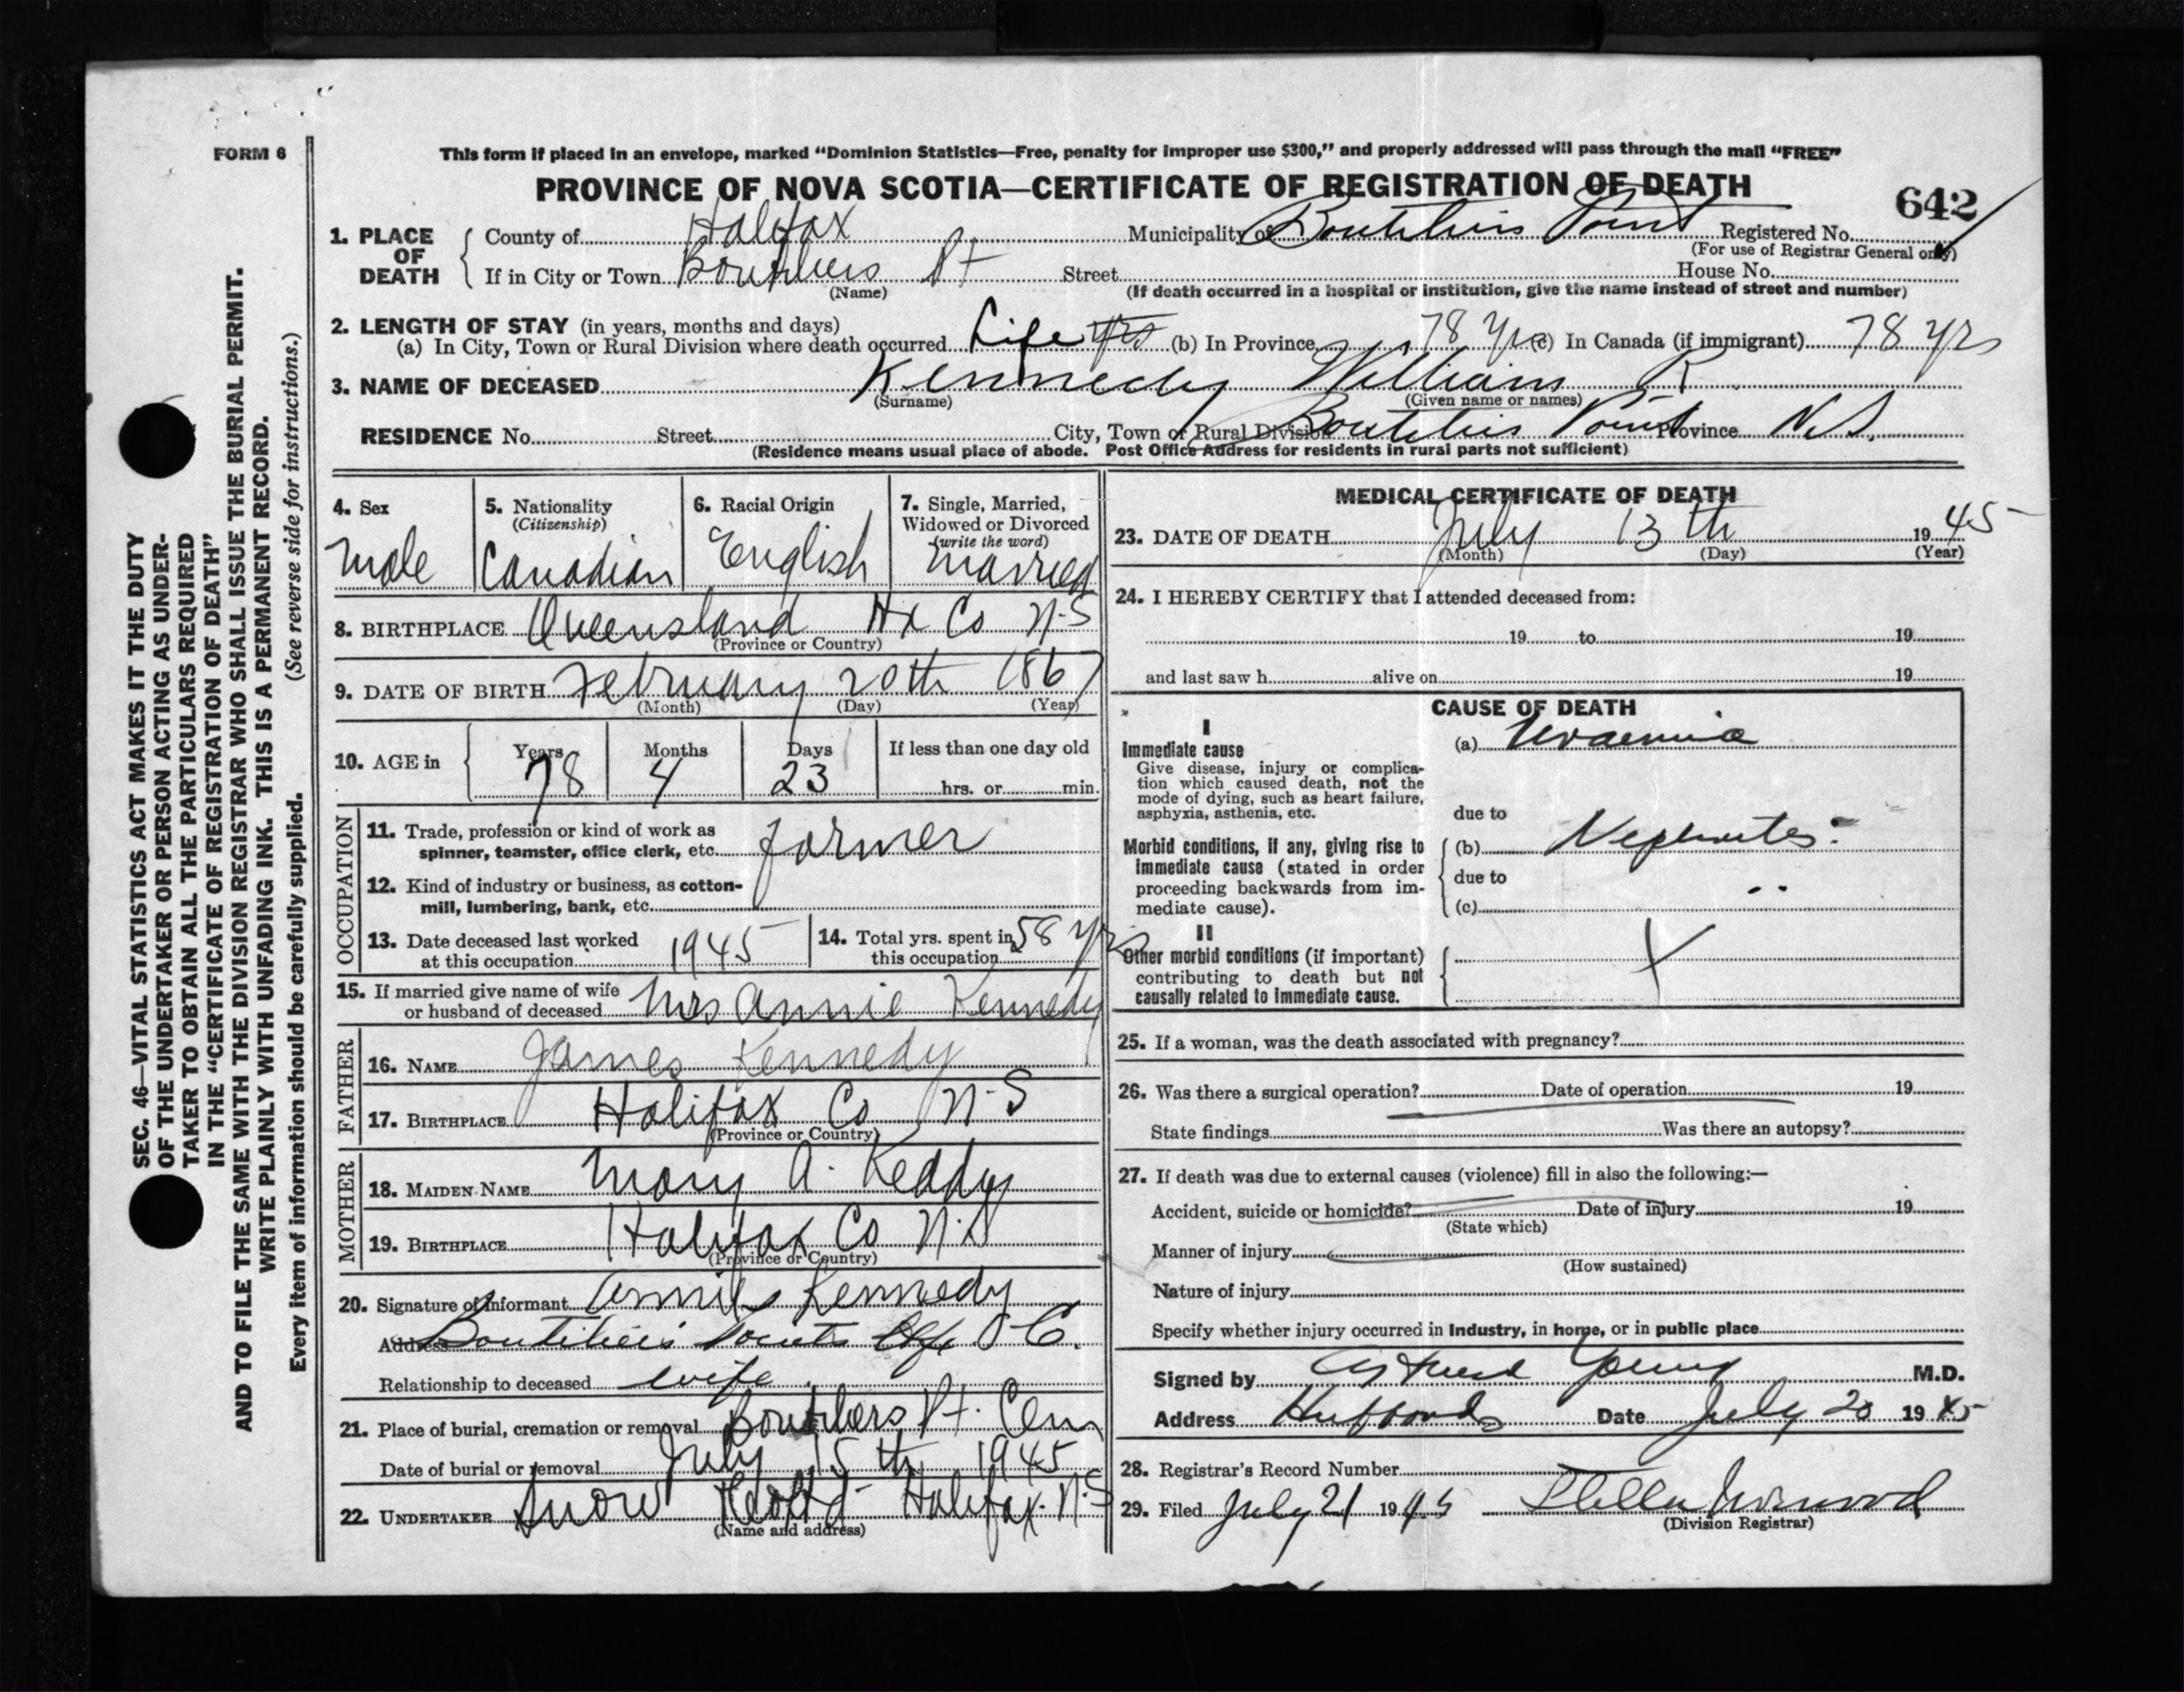 FORM 6
This form if placed in an envelope, marked “Dominion Statistics—Free, penalty for improper use $300,” and properly addressed will pass through the mail “FREE”
PROVINCE OF NOVA SCOTIA—CERTIFICATE OF REGISTRATION OF DEATH
642
1. PLACE OF DEATH
County of Halifax Municipality of Boutiliers Point Registered No.
(For use of Registrar General only)
If in City or Town Boutiliers Pt Street House No.
(Name) (If death occurred in a hospital or institution, give the name instead of street and number)
2. LENGTH OF STAY (in years, months and days)
(a) In City, Town or Rural Division where death occurred Life yrs (b) In Province 78 yrs (c) In Canada (if immigrant) 78 yrs
3. NAME OF DECEASED Kennedy William R.
(Surname) (Given name or names)
RESIDENCE No. Street City, Town or Rural Division Boutiliers Point Province N.S.
(Residence means usual place of abode. Post Office Address for residents in rural parts not sufficient)
4. Sex
Male
5. Nationality
(Citizenship)
Canadian
6. Racial Origin
English
7. Single, Married,
Widowed or Divorced
(write the word)
Married
8. BIRTHPLACE Queensland Hx Co N.S
(Province or Country)
9. DATE OF BIRTH February 20th 1867
(Month) (Day) (Year)
10. AGE in
Years Months Days If less than one day old
78 4 23 hrs. or min.
OCCUPATION
11. Trade, profession or kind of work as
spinner, teamster, office clerk, etc. farmer
12. Kind of industry or business, as cotton-
mill, lumbering, bank, etc.
13. Date deceased last worked
at this occupation 1945
14. Total yrs. spent in
this occupation 58 yrs
15. If married give name of wife
or husband of deceased Mrs Annie Kennedy
FATHER
16. NAME James Kennedy
17. BIRTHPLACE Halifax Co N.S
(Province or Country)
MOTHER
18. MAIDEN NAME Mary A. Keddy
19. BIRTHPLACE Halifax Co N.S
(Province or Country)
20. Signature of Informant Annie Kennedy
Address Boutiliers Point
Relationship to deceased wife
21. Place of burial, cremation or removal Boutiliers Pt. Cem
Date of burial or removal July 15th 1945
22. UNDERTAKER Snow Halifax. N.S
(Name and address)
MEDICAL CERTIFICATE OF DEATH
23. DATE OF DEATH July 13th 1945
(Month) (Day) (Year)
24. I HEREBY CERTIFY that I attended deceased from:
19 to 19
and last saw h alive on 19
CAUSE OF DEATH
I
Immediate cause
Give disease, injury or complica-
tion which caused death, not the
mode of dying, such as heart failure,
asphyxia, asthenia, etc.
(a) Uraemia
due to
Morbid conditions, if any, giving rise to
immediate cause (stated in order
proceeding backwards from im-
mediate cause).
(b) Nephritis
due to
(c)
II
Other morbid conditions (if important)
contributing to death but not
causally related to immediate cause.
X
25. If a woman, was the death associated with pregnancy?
26. Was there a surgical operation? Date of operation 19
State findings Was there an autopsy?
27. If death was due to external causes (violence) fill in also the following:—
Accident, suicide or homicide? Date of injury 19
(State which)
Manner of injury
(How sustained)
Nature of injury
Specify whether injury occurred in industry, in home, or in public place
Signed by Young M.D.
Address Hubbards Date July 20 1945
28. Registrar's Record Number
29. Filed July 21 1945 Stella
(Division Registrar)
SEC. 46—VITAL STATISTICS ACT MAKES IT THE DUTY
OF THE UNDERTAKER OR PERSON ACTING AS UNDER-
TAKER TO OBTAIN ALL THE PARTICULARS REQUIRED
IN THE “CERTIFICATE OF REGISTRATION OF DEATH”
AND TO FILE THE SAME WITH THE DIVISION REGISTRAR WHO SHALL ISSUE THE BURIAL PERMIT.
WRITE PLAINLY WITH UNFADING INK. THIS IS A PERMANENT RECORD.
Every item of information should be carefully supplied. (See reverse side for instructions.)